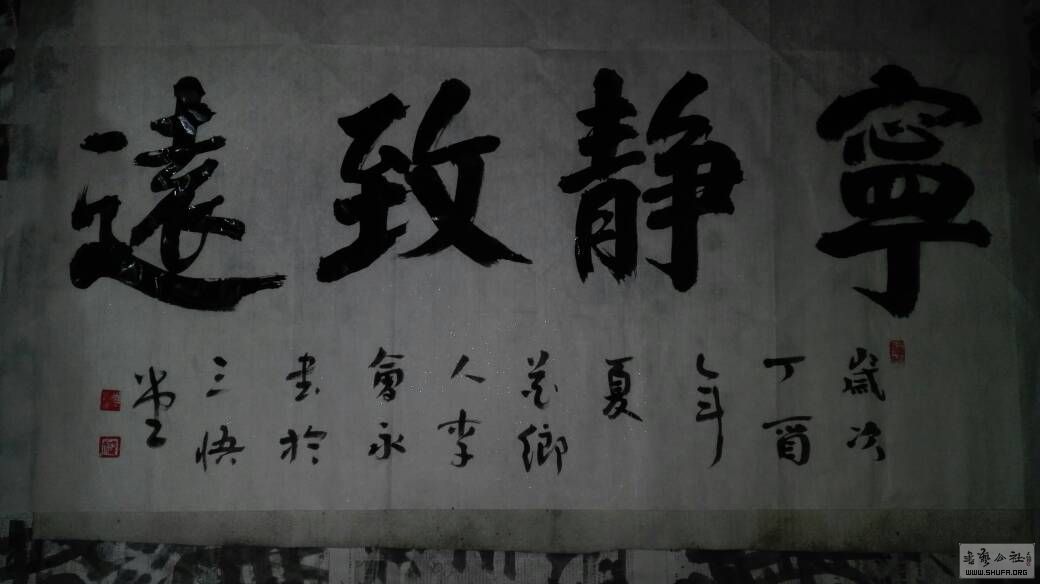 寧靜致遠
歲次
丁酉
年
夏
鄉
人李
會永
書於
三悟
堂
書藝公社
WWW.SHUFA.ORG